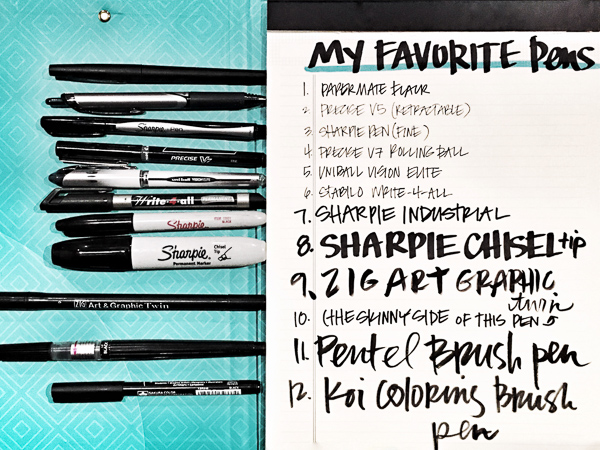 MY FAVORITE Pens
1. PAPERMATE FLAIR
2. PRECISE V5 (RETRACTABLE)
3. SHARPIE PEN (FINE)
4. PRECISE V7 ROLLING BALL
5. UNIBALL VISION ELITE
6. STABILO WRITE-4-ALL
7. SHARPIE INDUSTRIAL
8. SHARPIE CHISEL tip
9. ZIG ART GRAPHIC
twin
10. (THE SKINNY SIDE OF THIS PEN
11. Pentel Brush pen
12. Koi Coloring Brush
pen
Sharpie
PRECISE V7
uni-ball
Write-4-all
Sharpie
Sharpie
Permanent Marker
Chisel Tip
ZIG Art & Graphic Twin
SAKURA COLOR